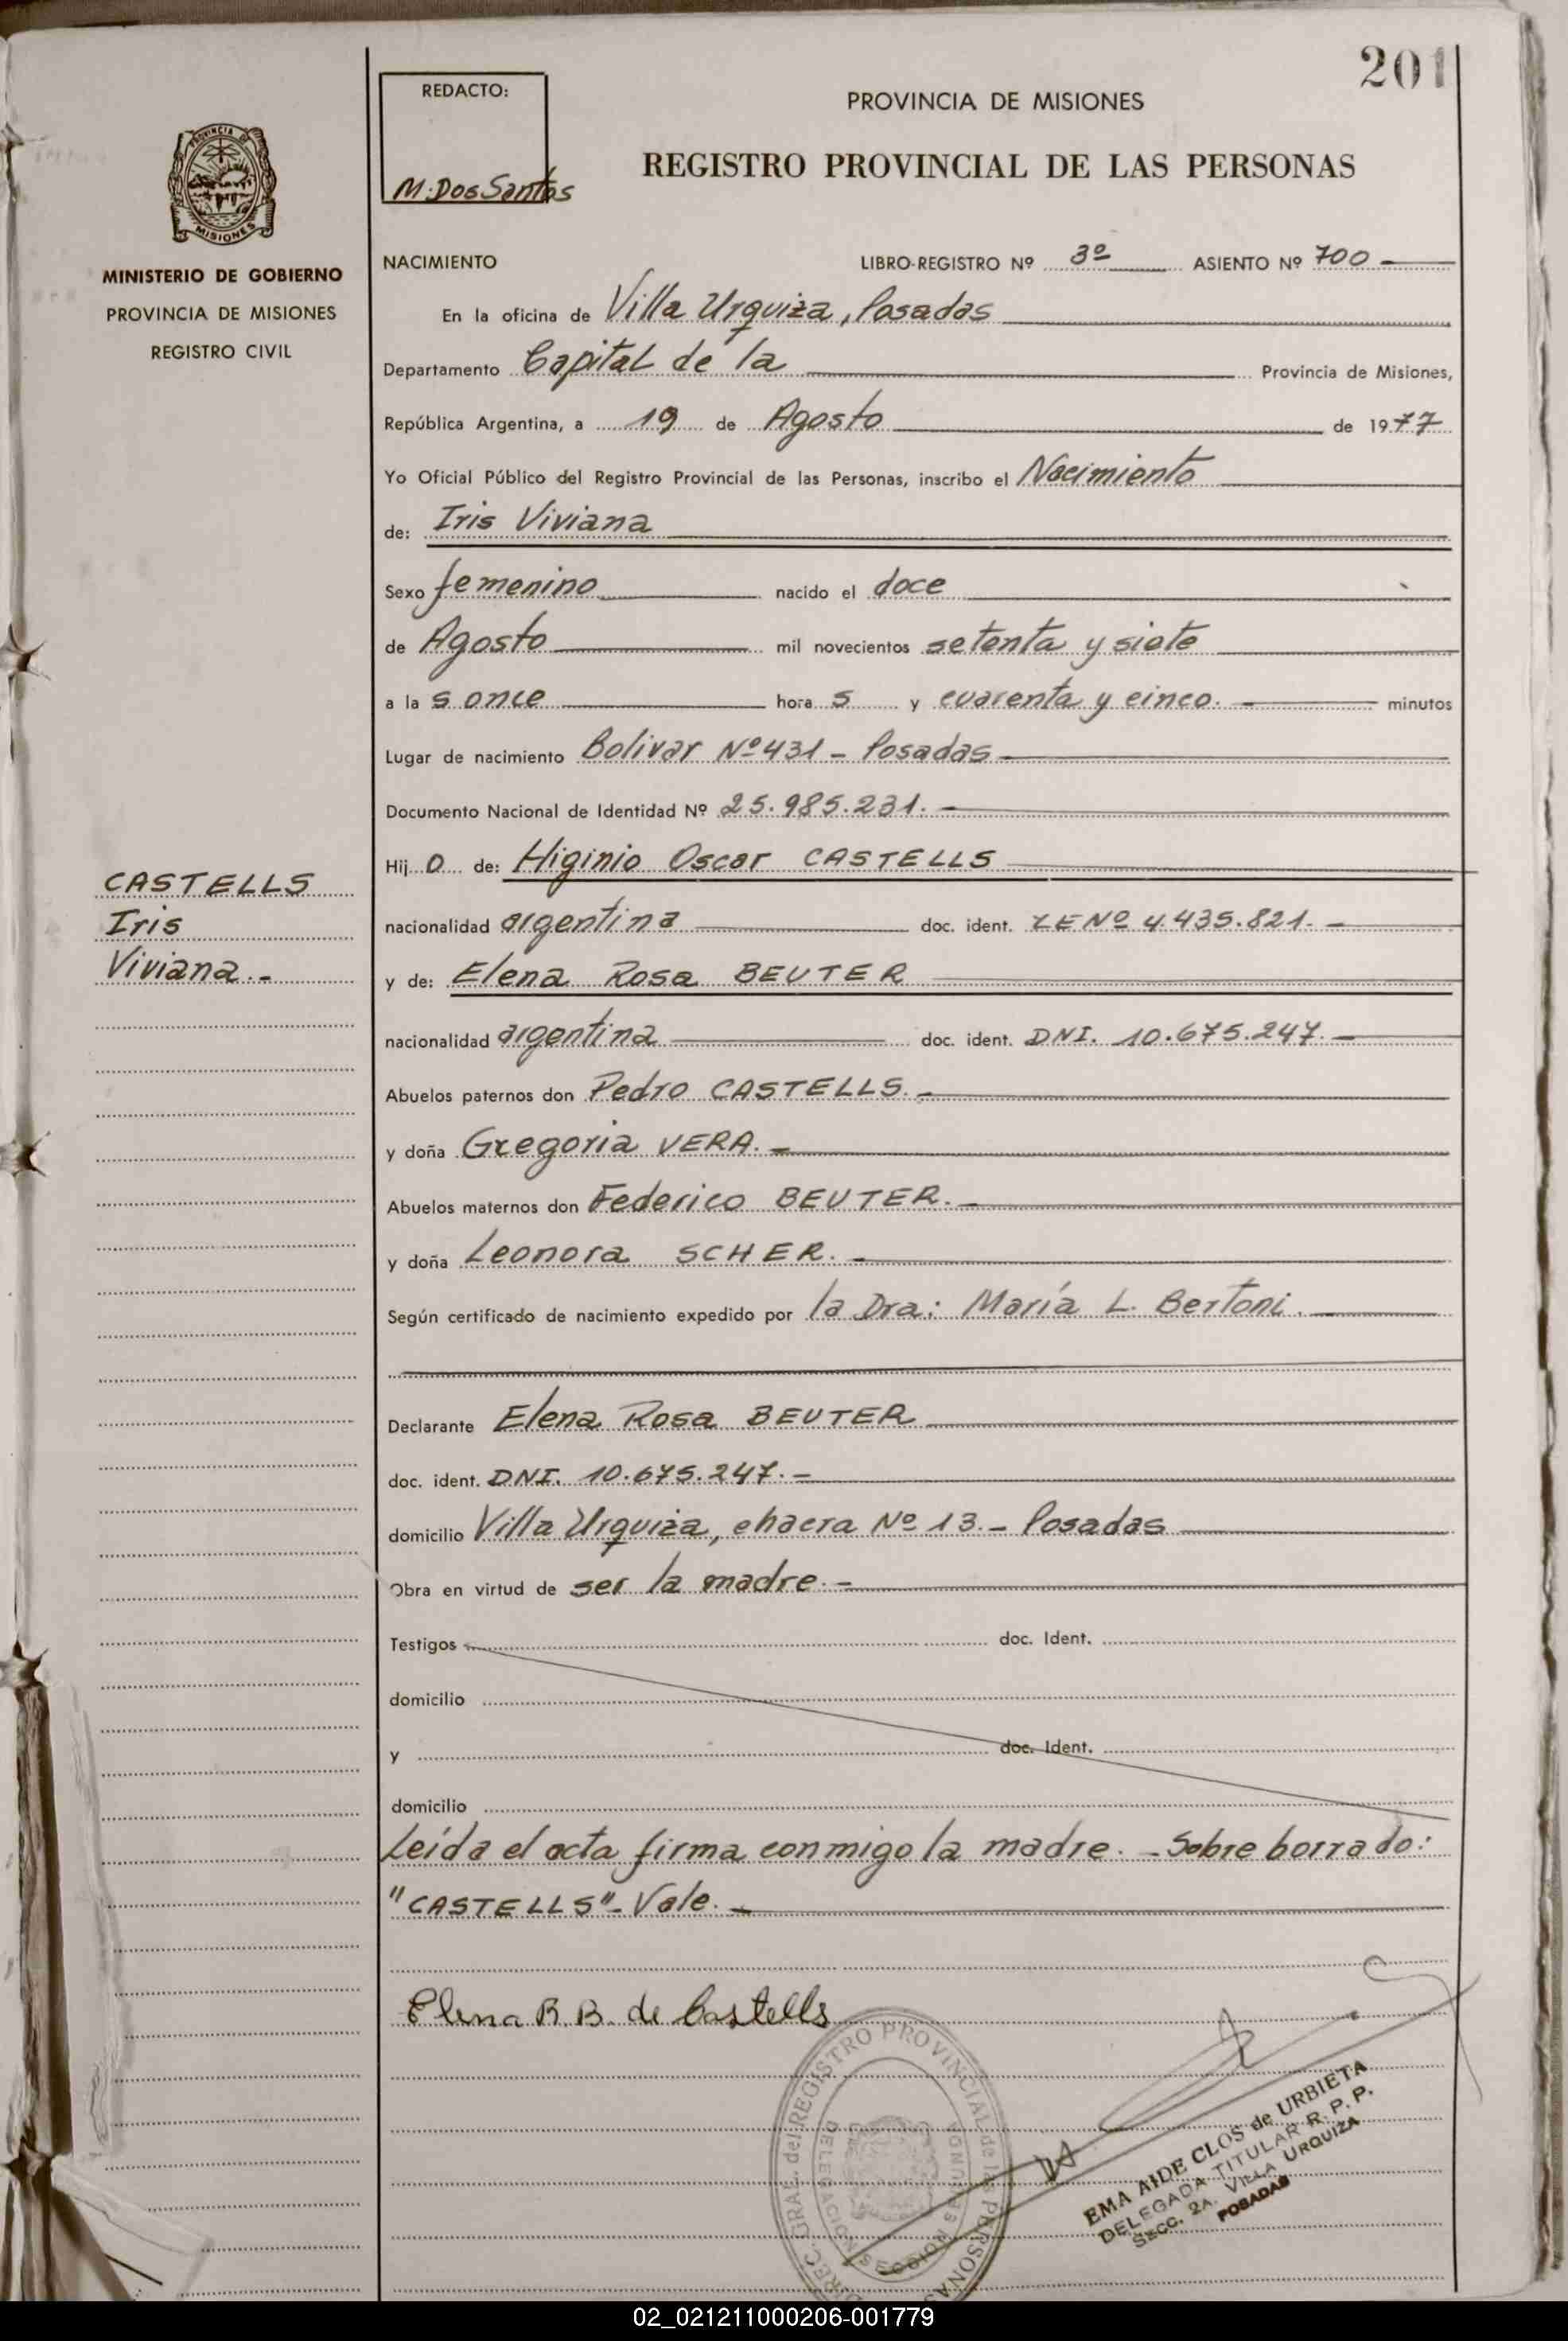 201
REDACTO:
M. Dos Santos
PROVINCIA DE MISIONES
REGISTRO PROVINCIAL DE LAS PERSONAS
PROVINCIA DE
MISIONES
MINISTERIO DE GOBIERNO
PROVINCIA DE MISIONES
REGISTRO CIVIL
NACIMIENTO LIBRO-REGISTRO Nº 3º ASIENTO Nº 700
En la oficina de Villa Urquiza, Posadas
Departamento Capital de la Provincia de Misiones,
República Argentina, a 19 de Agosto de 1977
Yo Oficial Público del Registro Provincial de las Personas, inscribo el Nacimiento
de: Iris Viviana
Sexo femenino nacido el doce
de Agosto mil novecientos setenta y siete
a la s once hora s y cuarenta y cinco. minutos
Lugar de nacimiento Bolivar Nº 431 - Posadas
Documento Nacional de Identidad Nº 25.985.231.-
Hij o de: Higinio Oscar CASTELLS
CASTELLS
Iris
Viviana.-
nacionalidad argentina doc. ident. LE Nº 4.435.821.-
y de: Elena Rosa BEUTER
nacionalidad argentina doc. ident. DNI. 10.675.247.-
Abuelos paternos don Pedro CASTELLS.-
y doña Gregoria VERA.-
Abuelos maternos don Federico BEUTER.-
y doña Leonora SCHER.-
Según certificado de nacimiento expedido por la Dra: María L. Bertoni.-
Declarante Elena Rosa BEUTER
doc. ident. DNI. 10.675.247.-
domicilio Villa Urquiza, chacra Nº 13.- Posadas
Obra en virtud de ser la madre.-
Testigos doc. Ident.
domicilio
y doc. Ident.
domicilio
Leída el acta, firma conmigo la madre.- Sobre borrado:
"CASTELLS"- Vale.-
Elena R. B. de Castells
DIREC. GRAL. del REGISTRO PROVINCIAL de las PERSONAS
DELEGACION SECCION SEGUNDA
EMA AIDE CLOS de URBIETA
DELEGADA TITULAR R. P. P.
SECC. 2A. VILLA URQUIZA
POSADAS
02_021211000206-001779